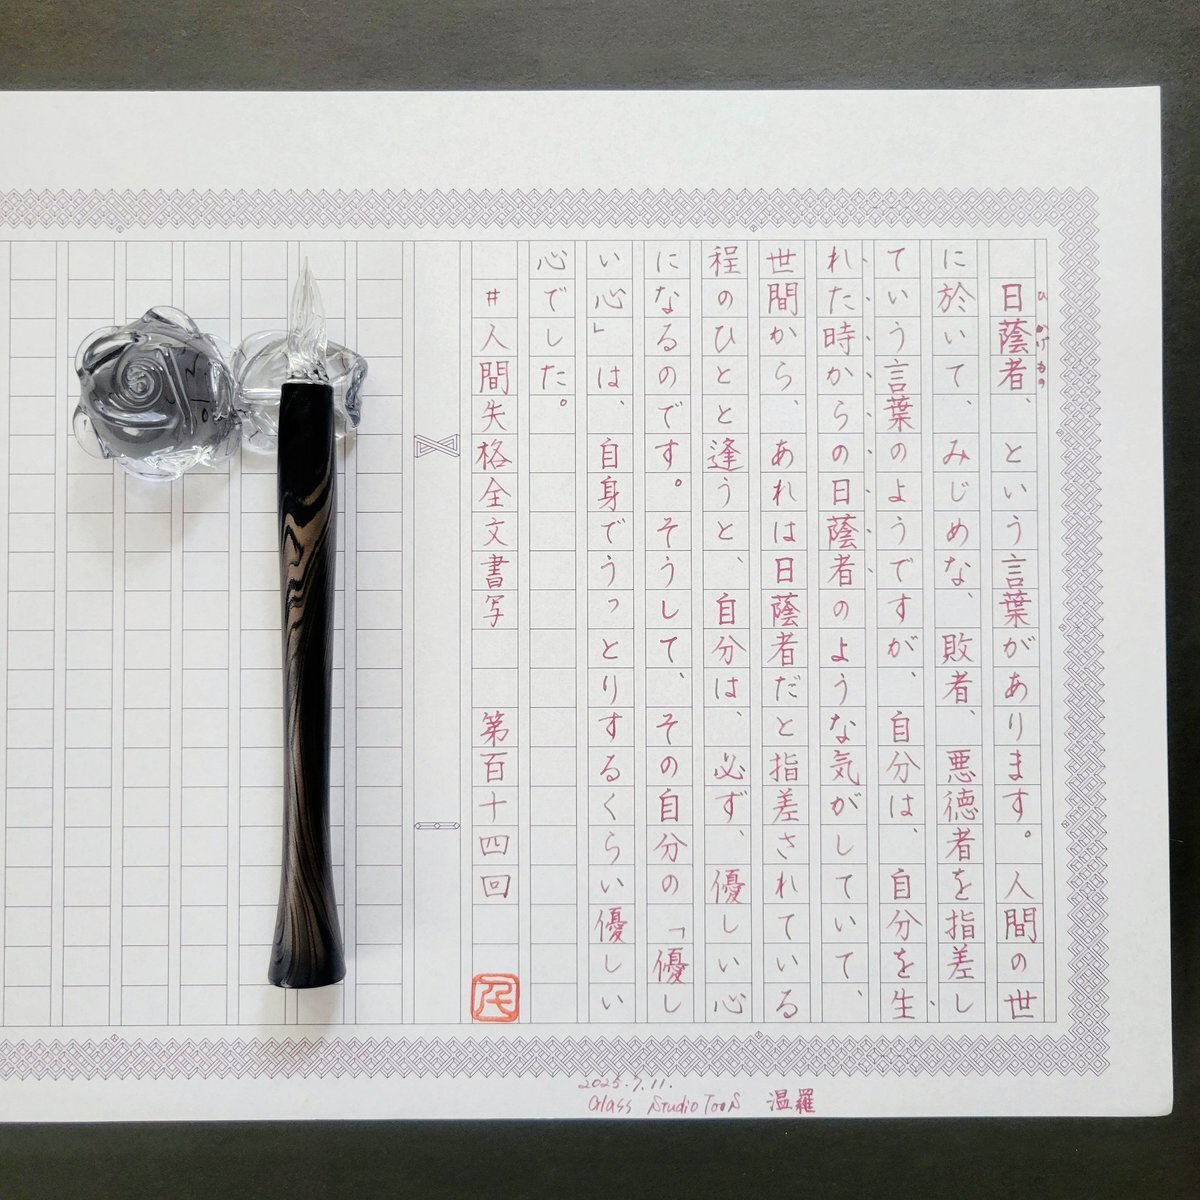 日蔭者、という言葉があります。人間の世
ひかげもの
に於いて、みじめな、敗者、悪徳者を指差し
ていう言葉のようですが、自分は、自分を生
れた時からの日蔭者のような気がしていて、
世間から、あれは日蔭者だと指差されている
程のひとと逢うと、自分は、必ず、優しい心
になるのです。そうして、その自分の「優し
い心」は、自身でうっとりするくらい優しい
心でした。
#人間失格全文書写 第百十四回
2025.7.11.
Glass Studio TooS 温羅